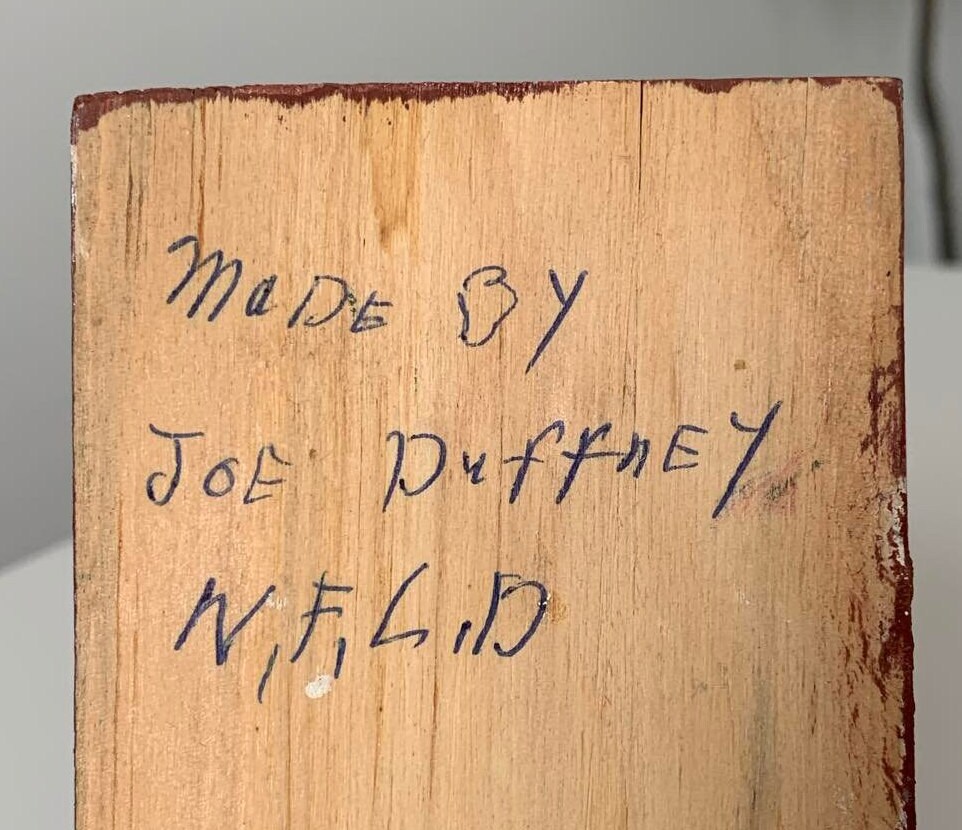 MaDE BY
JOE DuffnEY
N,F,L,D